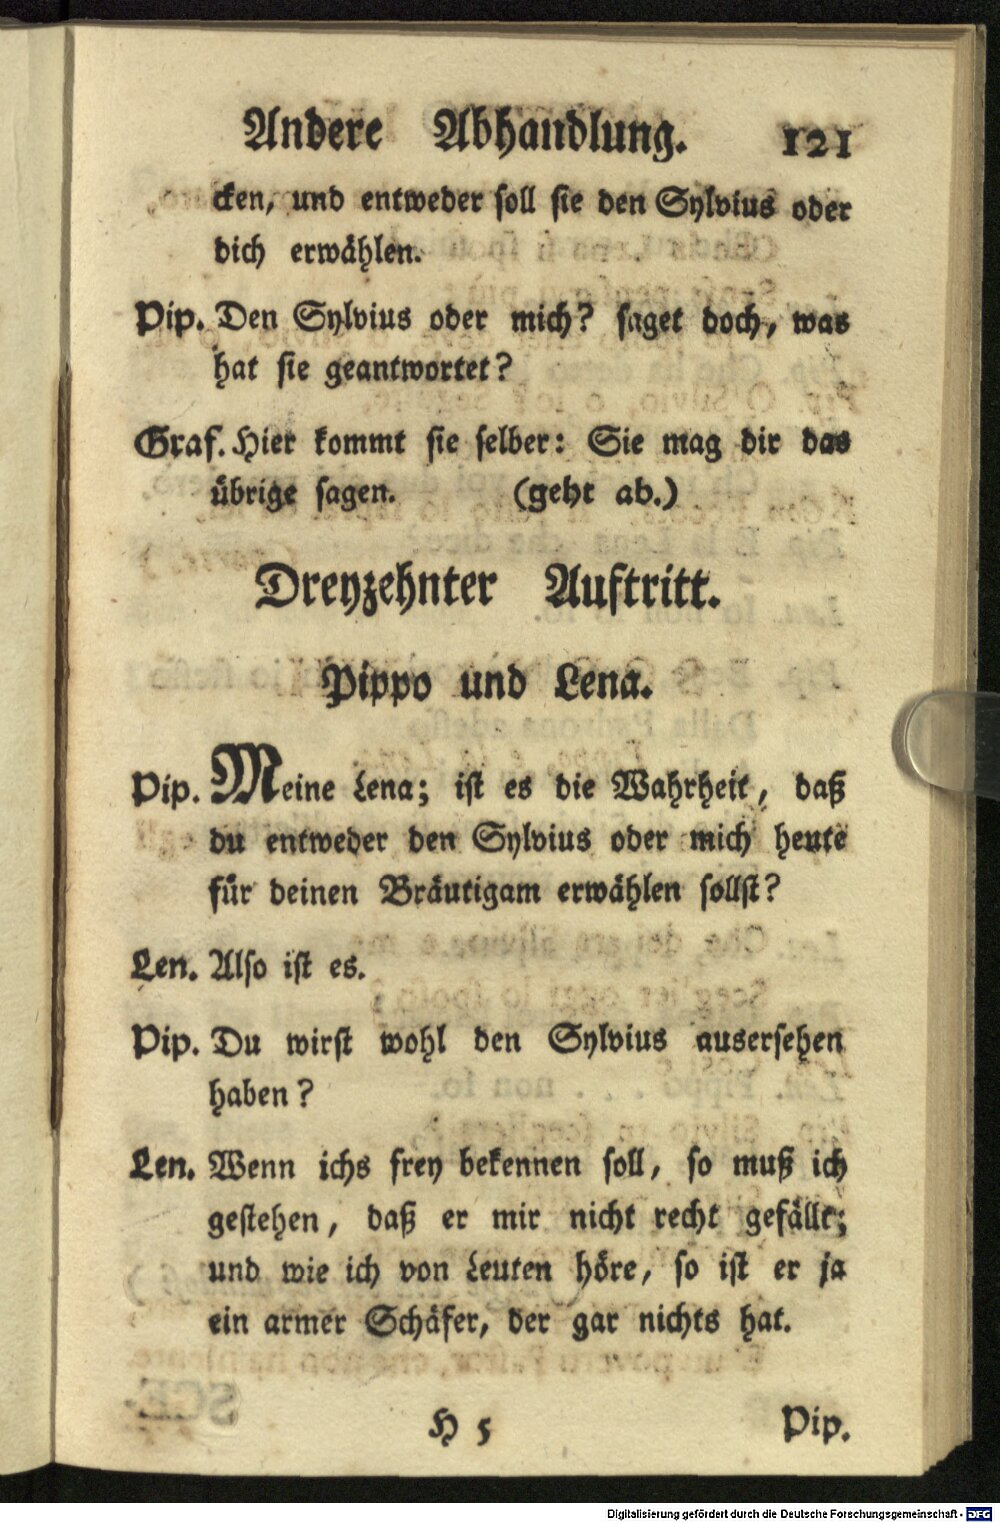 Andere Abhandlung. 121
cken, und entweder soll sie den Sylvius oder
dich erwählen.
Pip. Den Sylvius oder mich? saget doch, was
hat sie geantwortet?
Graf. Hier kommt sie selber: Sie mag dir das
übrige sagen. (geht ab.)
Dreyzehnter Auftritt.
Pippo und Lena.
Pip. Meine Lena; ist es die Wahrheit, daß
du entweder den Sylvius oder mich heute
für deinen Bräutigam erwählen sollst?
Len. Also ist es.
Pip. Du wirst wohl den Sylvius ausersehen
haben?
Len. Wenn ichs frey bekennen soll, so muß ich
gestehen, daß er mir nicht recht gefällt;
und wie ich von Leuten höre, so ist er ja
ein armer Schäfer, der gar nichts hat.
H 5 Pip.
Digitalisierung gefördert durch die Deutsche Forschungsgemeinschaft - DFG